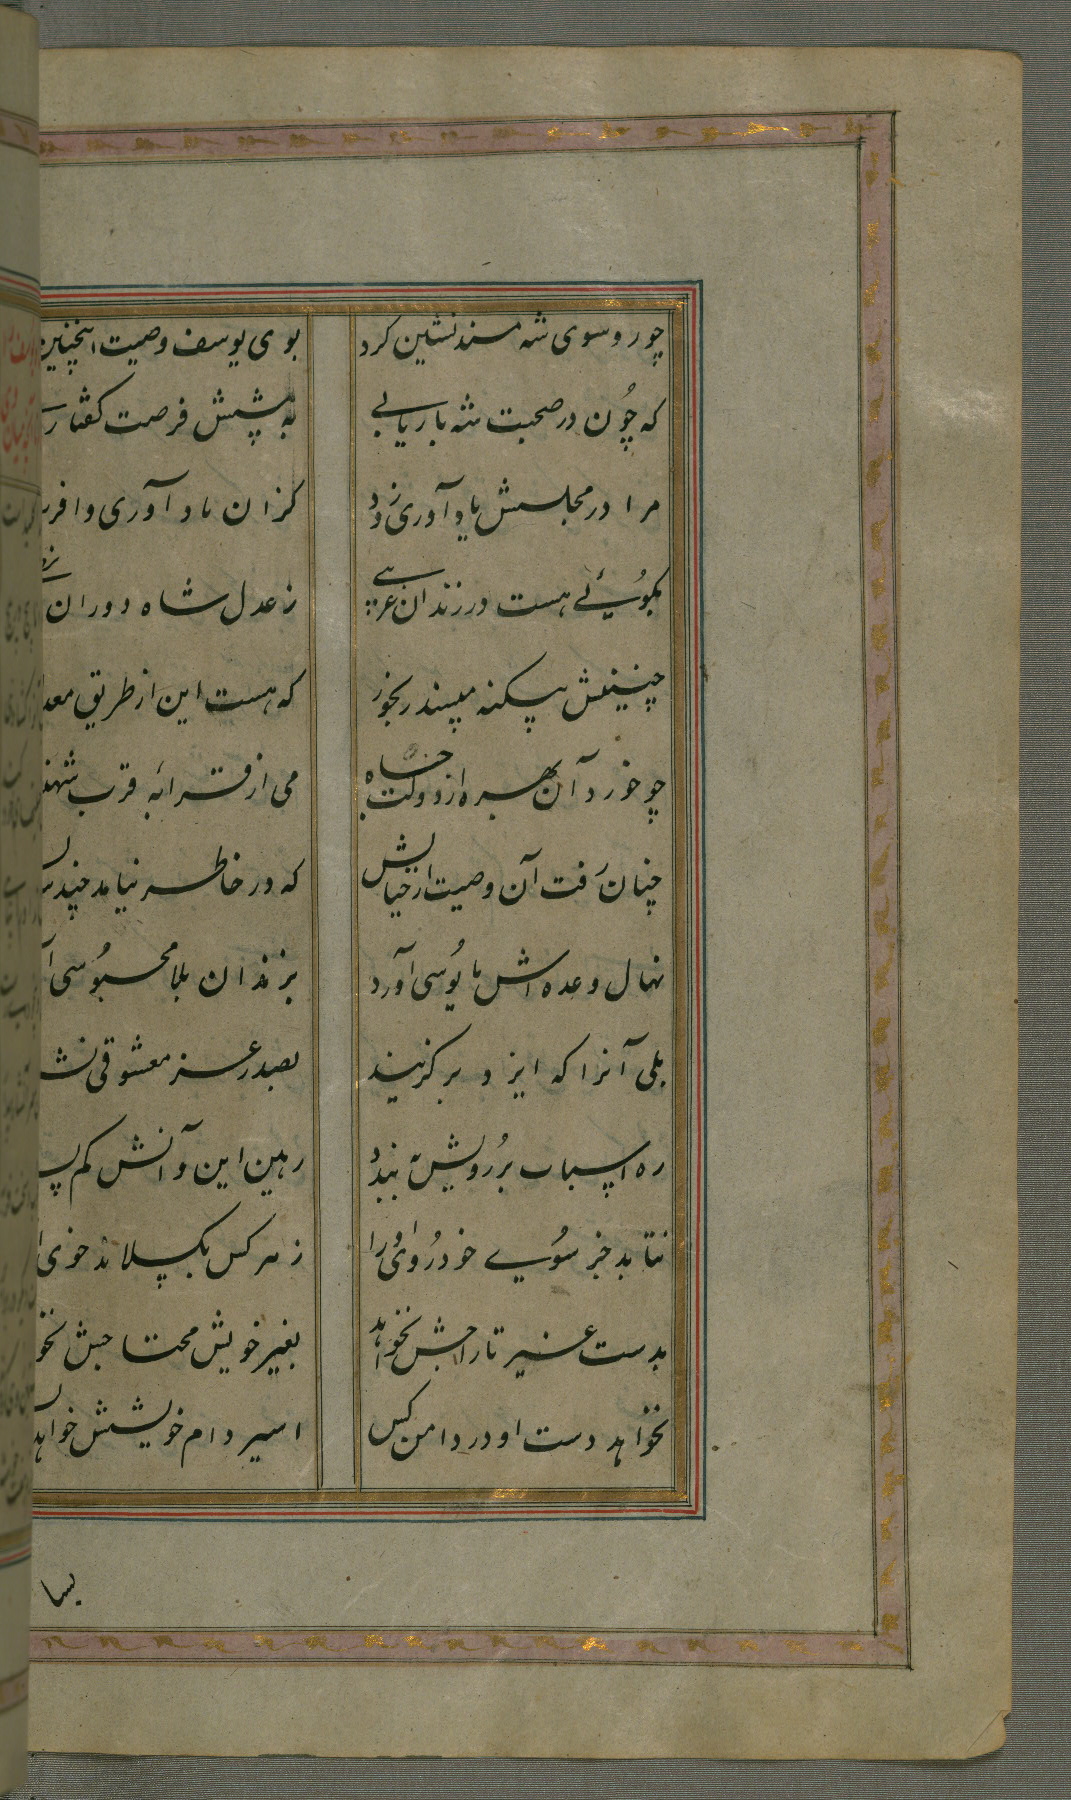 چو رو سوی شه مسند نشین کرد بوی یوسف وصیت اینچنین
که چون در صحبت شه باریابی به پیشش فرصت گفتار
مرا در مجلسش یاد آوری زود کزان یاد آوری وافر
بگوئی هست در زندان غریبی ز عدل شاه دوران
چنینش بیگنه مپسند رنجور که هست این از طریق
چو خورد آن بهره از دولت جاه می از قرابه قرب
چنان رفت آن وصیت از خیالش که در خاطر نیامد چند
نهال وعده اش مایوسی آورد بزندان بلا محبوسی
بلی آنرا که ایزد برگزیند بصدر عز معشوقی
ره اسباب بر رویش به بندد رهین این و آنش کم
نتابد جز سوی خود روی او را ز هر کس بگسلاند خوی
بدست غیر تاراجش نخواهد بغیر خویش محتاجش
نخواهد دست او در دامن کس اسیر دام خویشش خواهد